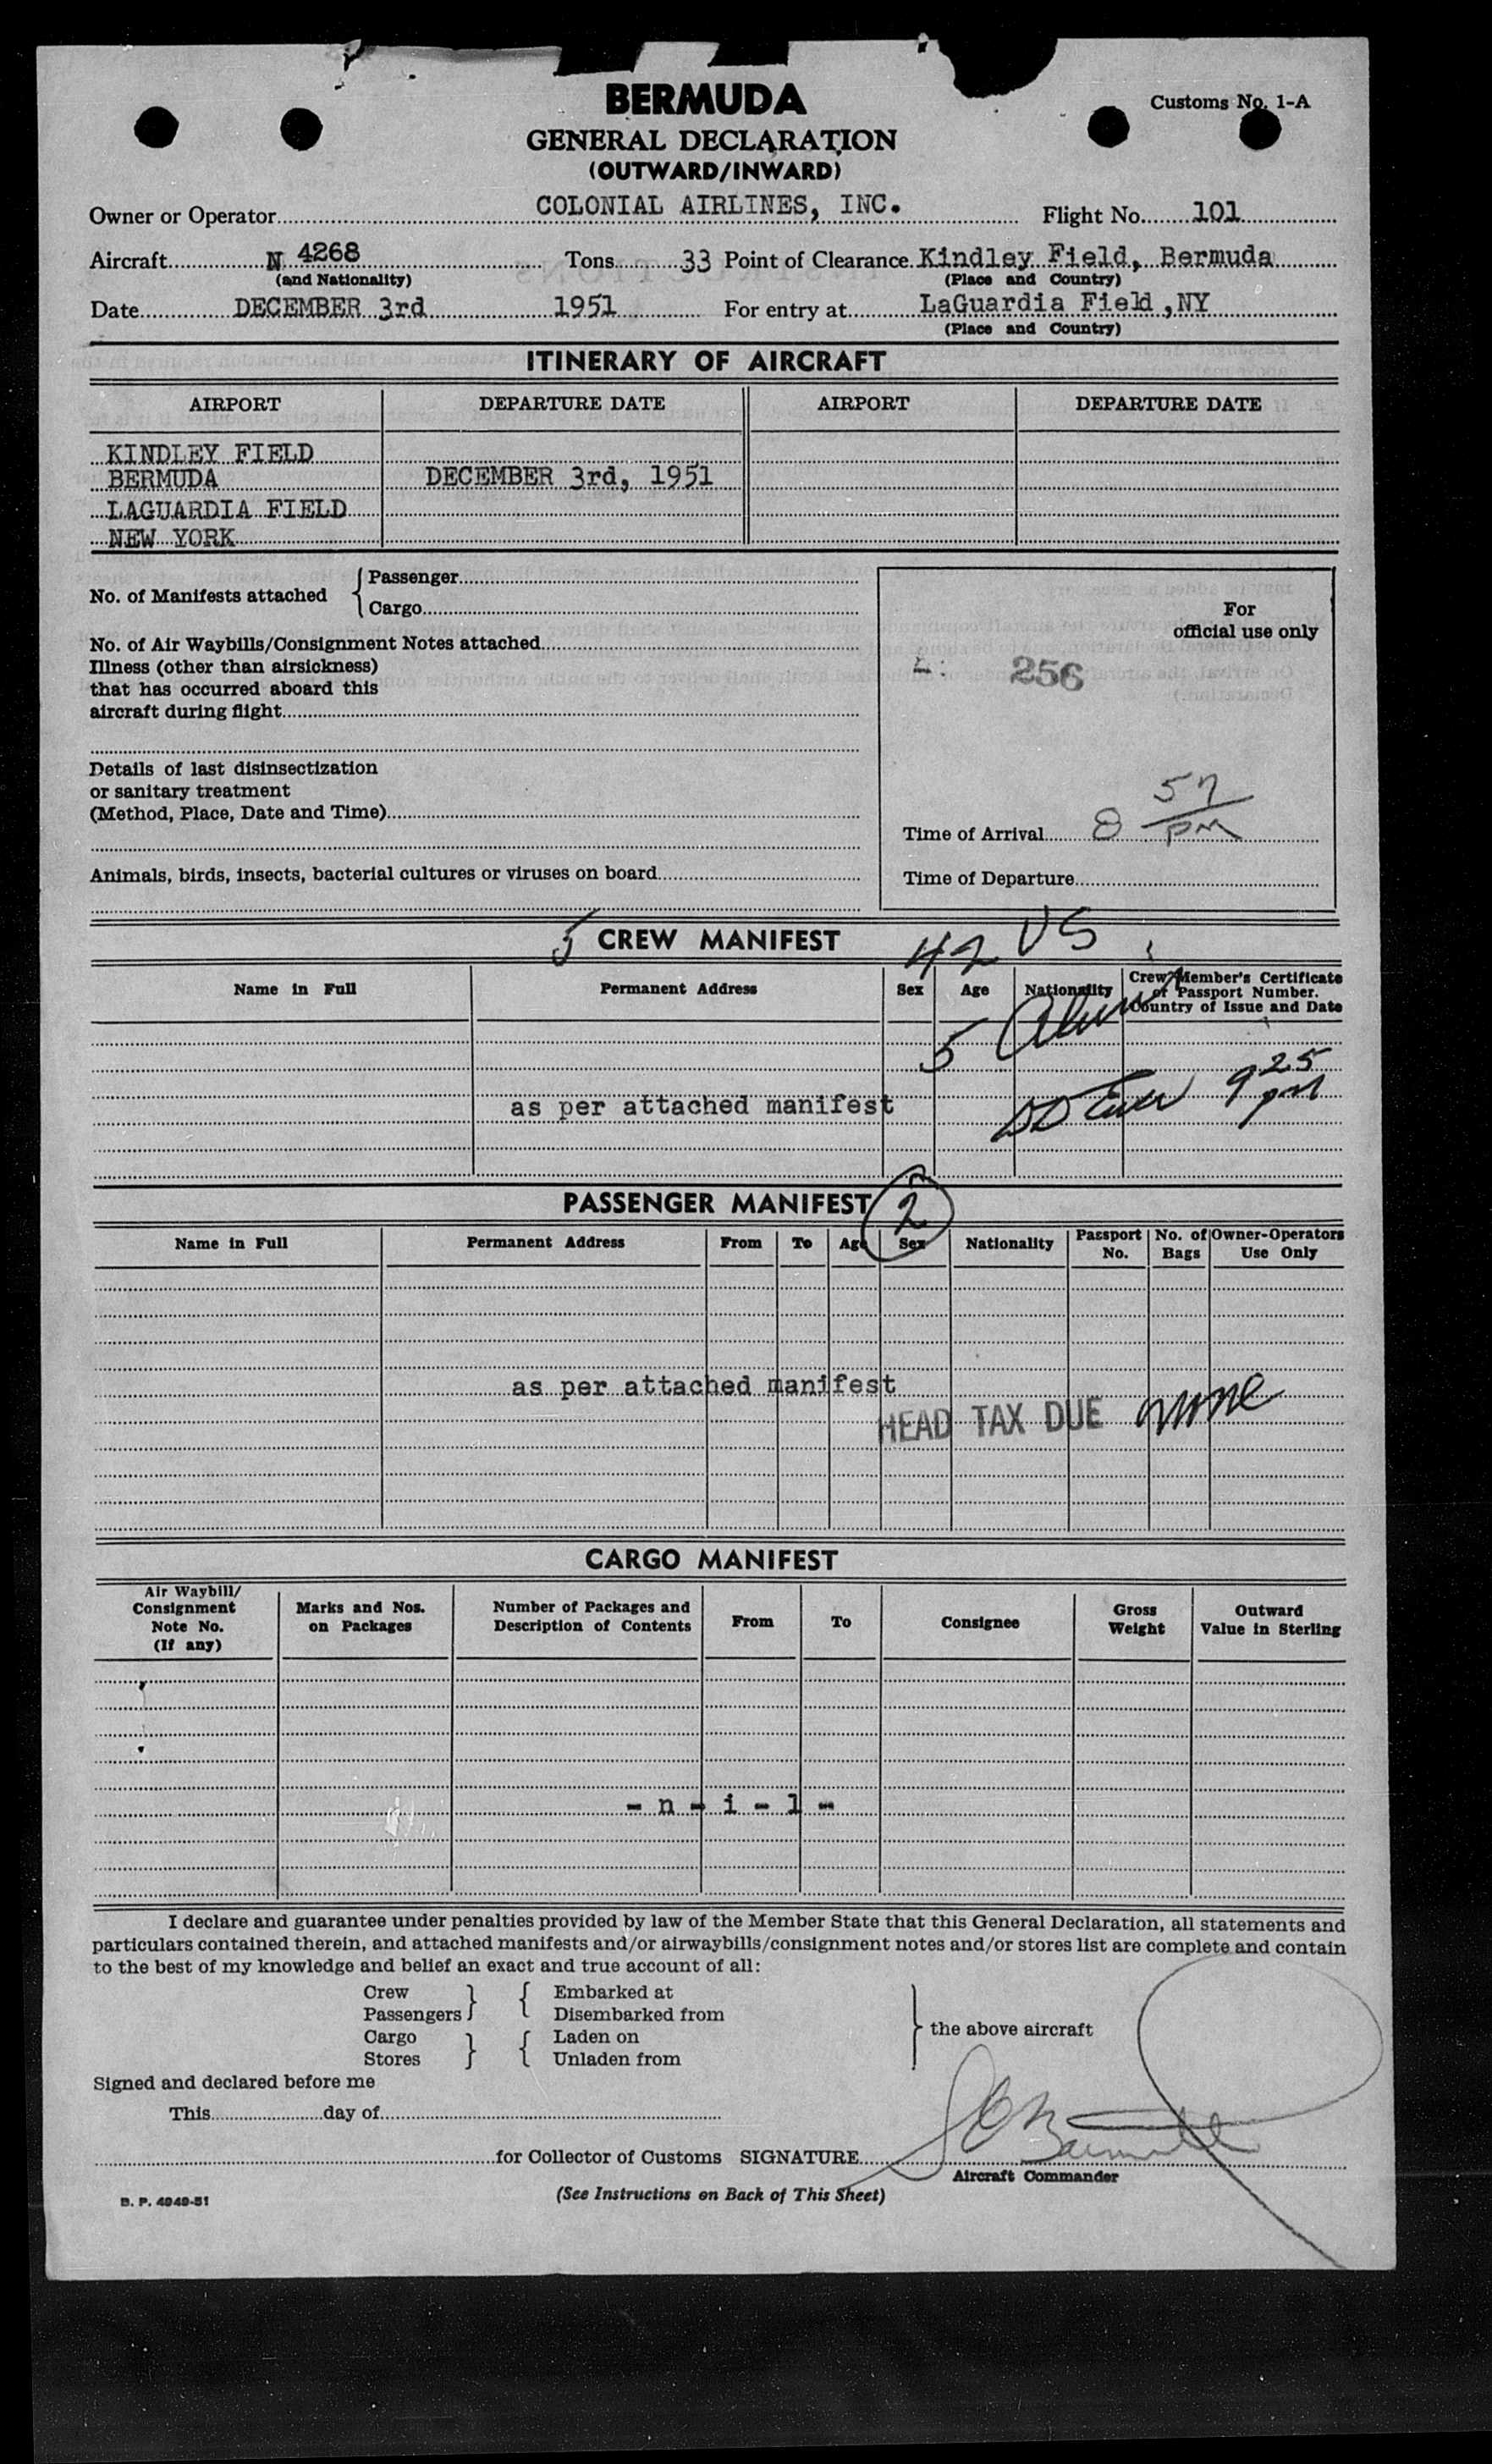 BERMUDA
Customs No. 1-A
GENERAL DECLARATION
(OUTWARD/INWARD)
Owner or Operator COLONIAL AIRLINES, INC. Flight No. 101
Aircraft N 4268 Tons 33 Point of Clearance Kindley Field, Bermuda
(and Nationality) (Place and Country)
Date DECEMBER 3rd 1951 For entry at LaGuardia Field,NY
(Place and Country)
ITINERARY OF AIRCRAFT
AIRPORT DEPARTURE DATE AIRPORT DEPARTURE DATE
KINDLEY FIELD
BERMUDA DECEMBER 3rd, 1951
LAGUARDIA FIELD
NEW YORK
No. of Manifests attached { Passenger
Cargo
For
official use only
No. of Air Waybills/Consignment Notes attached
Illness (other than airsickness)
256
that has occurred aboard this
aircraft during flight
Details of last disinsectization
or sanitary treatment
(Method, Place, Date and Time)
Time of Arrival 8 57 PM
Animals, birds, insects, bacterial cultures or viruses on board
Time of Departure
5 CREW MANIFEST 42 US
Name in Full Permanent Address Sex Age Nationality Crew Member's Certificate
or Passport Number.
Country of Issue and Date
5 Alien
9 25 pm
as per attached manifest
PASSENGER MANIFEST 2
Name in Full Permanent Address From To Age Sex Nationality Passport No. No. of Bags Owner-Operators Use Only
as per attached manifest
HEAD TAX DUE none
CARGO MANIFEST
Air Waybill/ Consignment Note No. (If any) Marks and Nos. on Packages Number of Packages and Description of Contents From To Consignee Gross Weight Outward Value in Sterling
- n - i - l -
I declare and guarantee under penalties provided by law of the Member State that this General Declaration, all statements and
particulars contained therein, and attached manifests and/or airwaybills/consignment notes and/or stores list are complete and contain
to the best of my knowledge and belief an exact and true account of all:
Crew } { Embarked at
Passengers Disembarked from
Cargo } { Laden on } the above aircraft
Stores Unladen from
Signed and declared before me
This day of
for Collector of Customs SIGNATURE
Aircraft Commander
(See Instructions on Back of This Sheet)
B. P. 4949-51